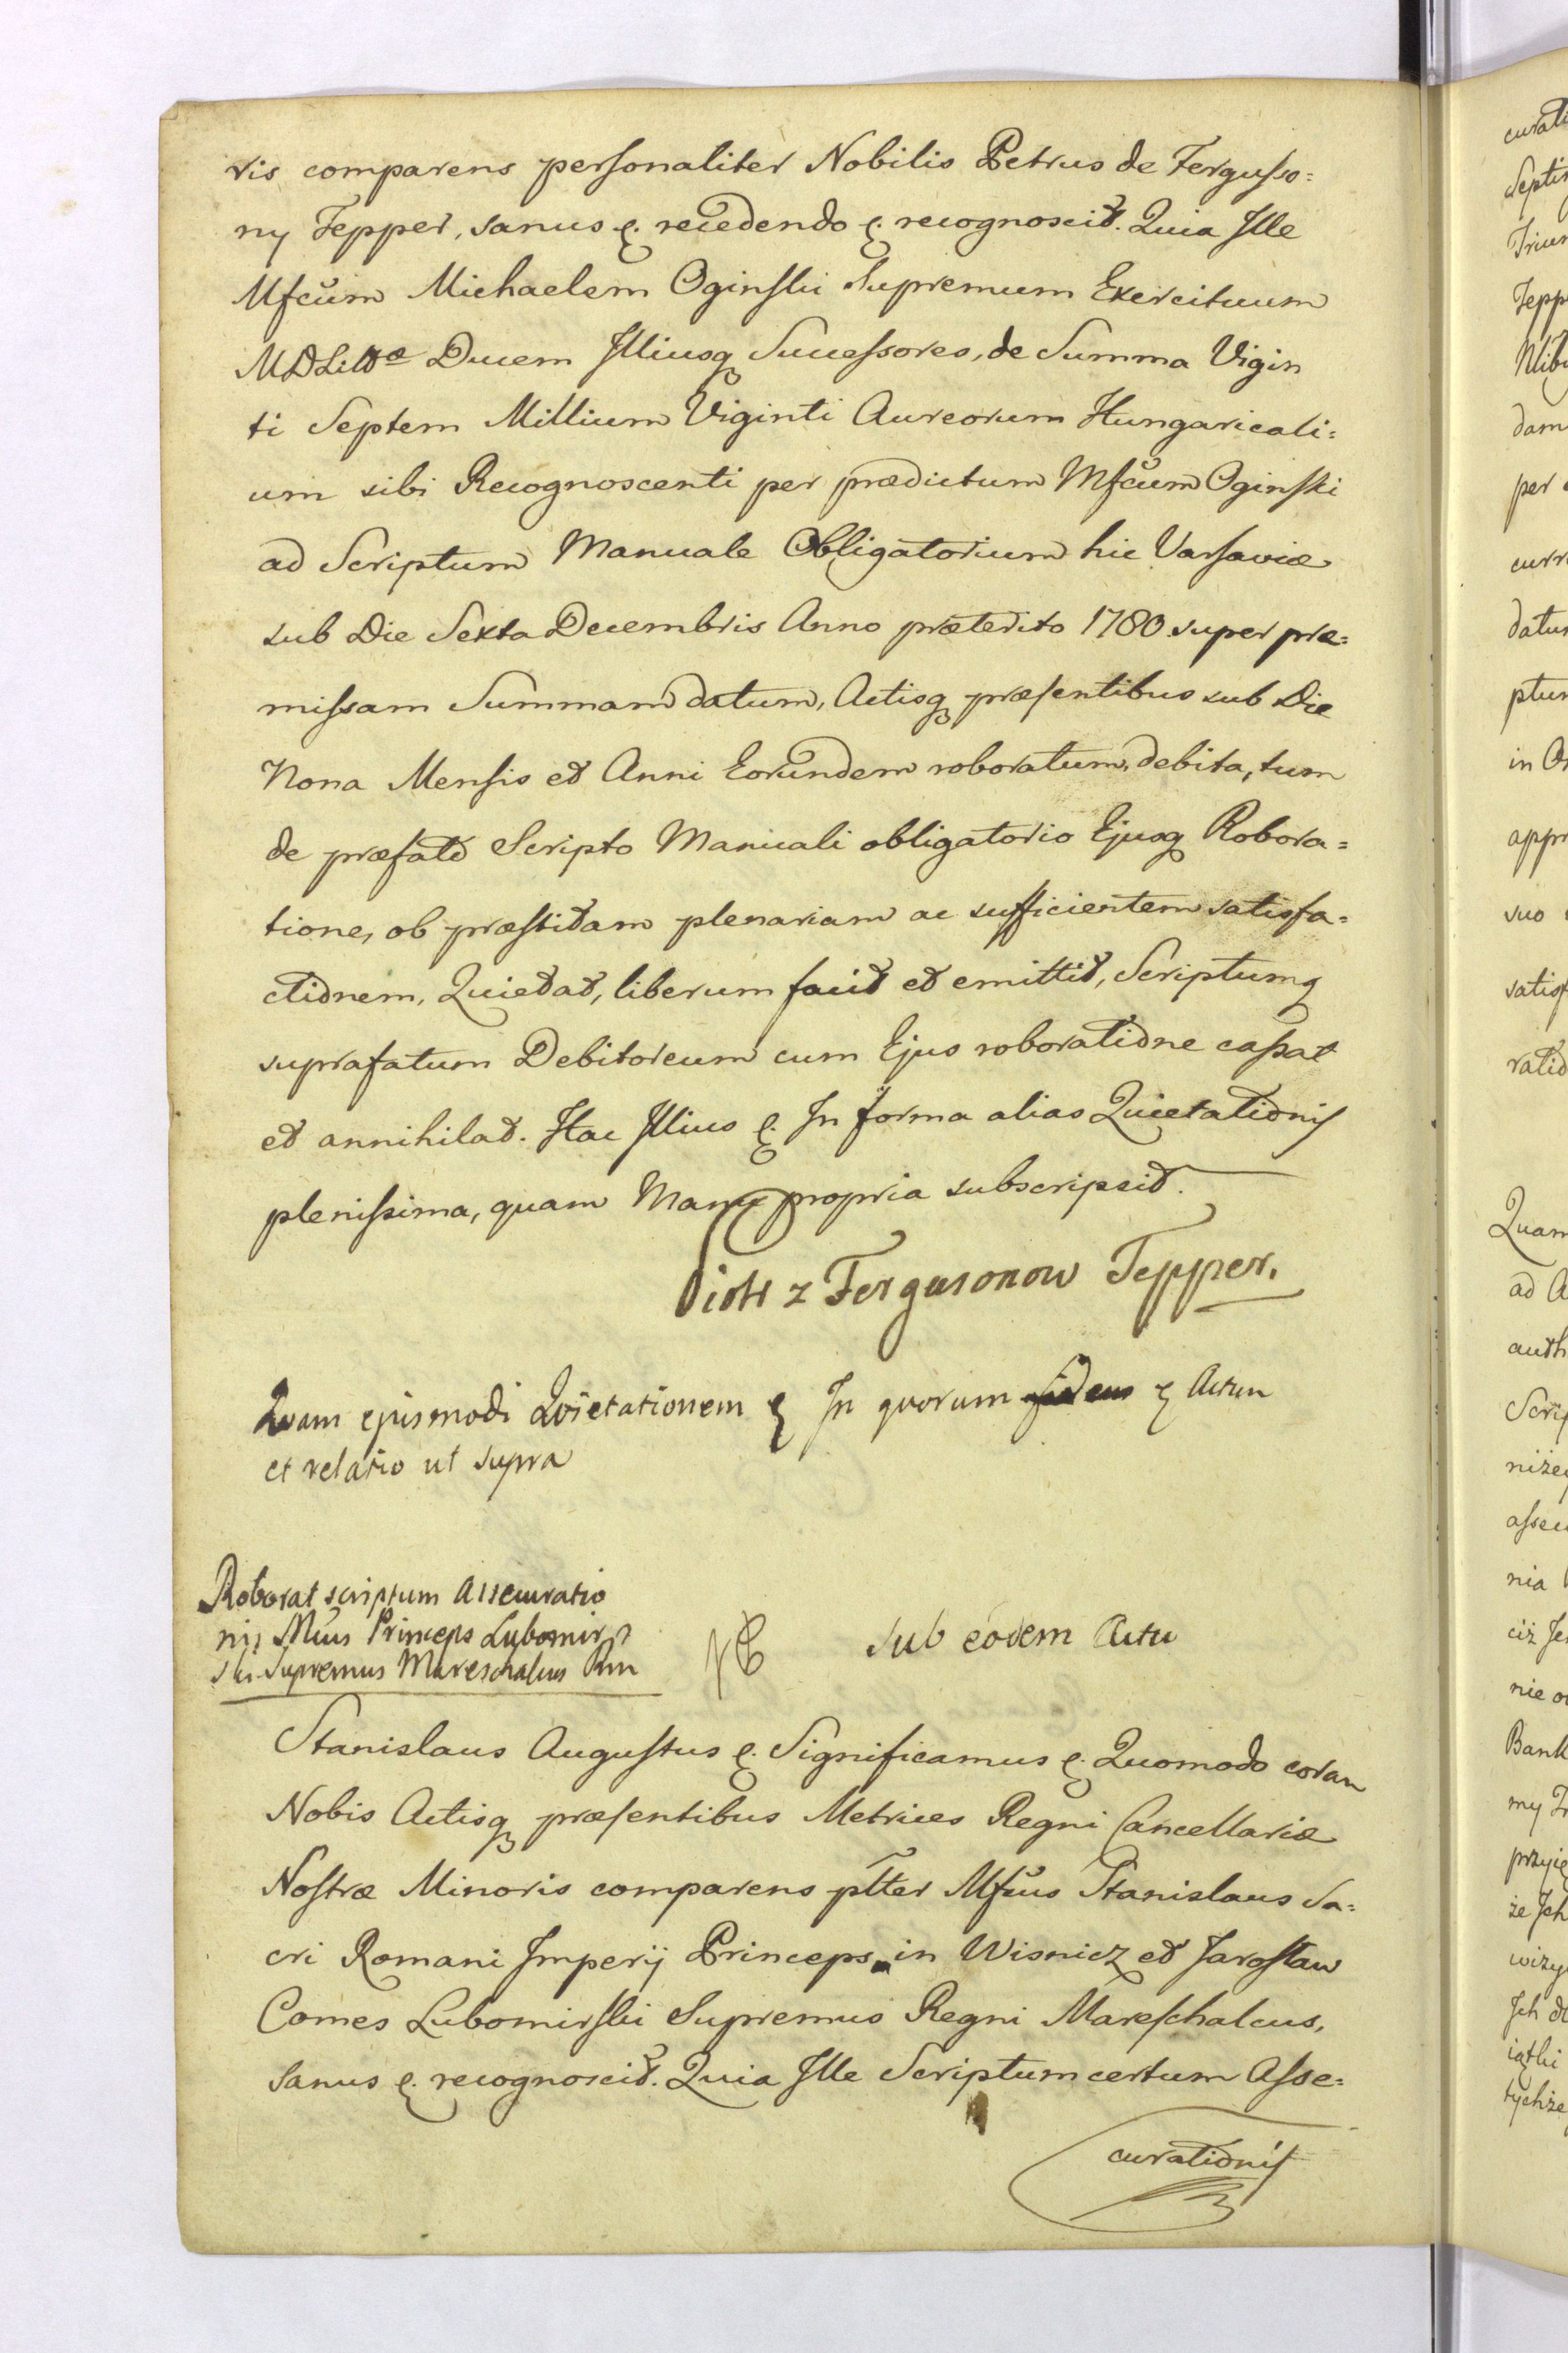 ris comparens personaliter Nobilis Petrus de Fergusso=
ny Tepper, sanus &. recedendo &. recognoscit. Quia Ille
Mfcum Michaelem Oginski Supremum Exercituum
MDLittæ Ducem Illiusq Successores, de Summa Vigin
ti Septem Millium Viginti Aureorum Hungaricali=
um sibi Recognoscenti per prædictum Mfcum Oginski
ad Scriptum Manuale Obligatorium hic Varsaviæ
sub Die Sexta Decembris Anno præterito 1780 super præ=
missam Summam datum, Actisq præsentibus sub Die
Nona Mensis et Anni Eorundem roboratum, debita, tum
de præfato Scripto Manuali obligatorio Ejusq Robora=
tione, ob præstitam plenariam ac sufficientem satisfa=
ctionem, Quietat, liberum facit et emittit, Scriptumq
suprafatum Debitoreum cum Ejus roboratione cassat
et annihilat. Hac Illius &. In forma alias Quietationis
plenissima, quam Manu propria subscripsit.
Piotr z Fergusonow Tepper.
Quam ejusmodi Quietationem & In quorum fidem & Actum
et relatio ut supra
Roborat scriptum Assecuratio
nis Mfcus Princeps Lubomir
ski Supremus Mareschalcus Rni
Sub eodem Actu
Stanislaus Augustus &. Significamus &. Quomodo coram
Nobis Actisq præsentibus Metrices Regni Cancellariæ
Nostræ Minoris comparens pltter Mfcus Stanislaus Sa=
cri Romani Imperij Princeps in Wisnicz et Jaroslaw
Comes Lubomirski Supremus Regni Mareschalcus,
sanus &. recognoscit. Quia Ille Scriptum certum Asse=
curationis